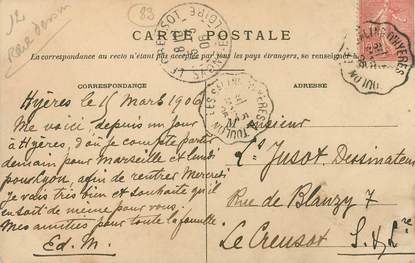 12
83
CARTE POSTALE
La correspondance au recto n'étant pas acceptée par tous les pays étrangers, se renseigner
CORRESPONDANCE
ADRESSE
LE CREUSOT
SAÔNE-ET-LOIRE
TOULON
LES SALINS D'HYÈRES À TOULON
Hyères le 15 Mars 1906
Me voici, depuis un jour
à Hyères, d'où je compte partir
demain pour Marseille et lundi
pour Lyon, afin de rentrer Mercredi
Je vais très bien et souhaite qu'il
en soit de même pour vous.
Mes amitiés pour toute la famille
Ed. M.
Monsieur
Ls Jusot. Dessinateur
Rue de Blanzy 7
Le Creusot S. & Lre